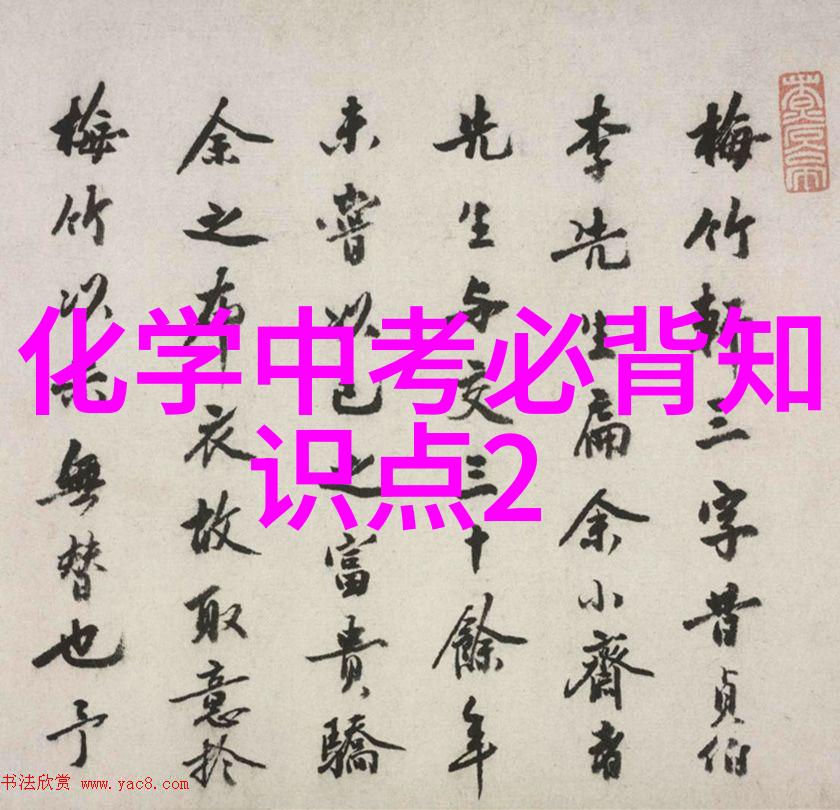 化学中考必背知
识点2
梅竹軒三字昔貞伯
李先生扁余小齋者
先生与交三十餘年
未嘗以己之富貴驕
余之布衣故取意於
梅竹以示無替也予
书法欣赏 www.yac8.com